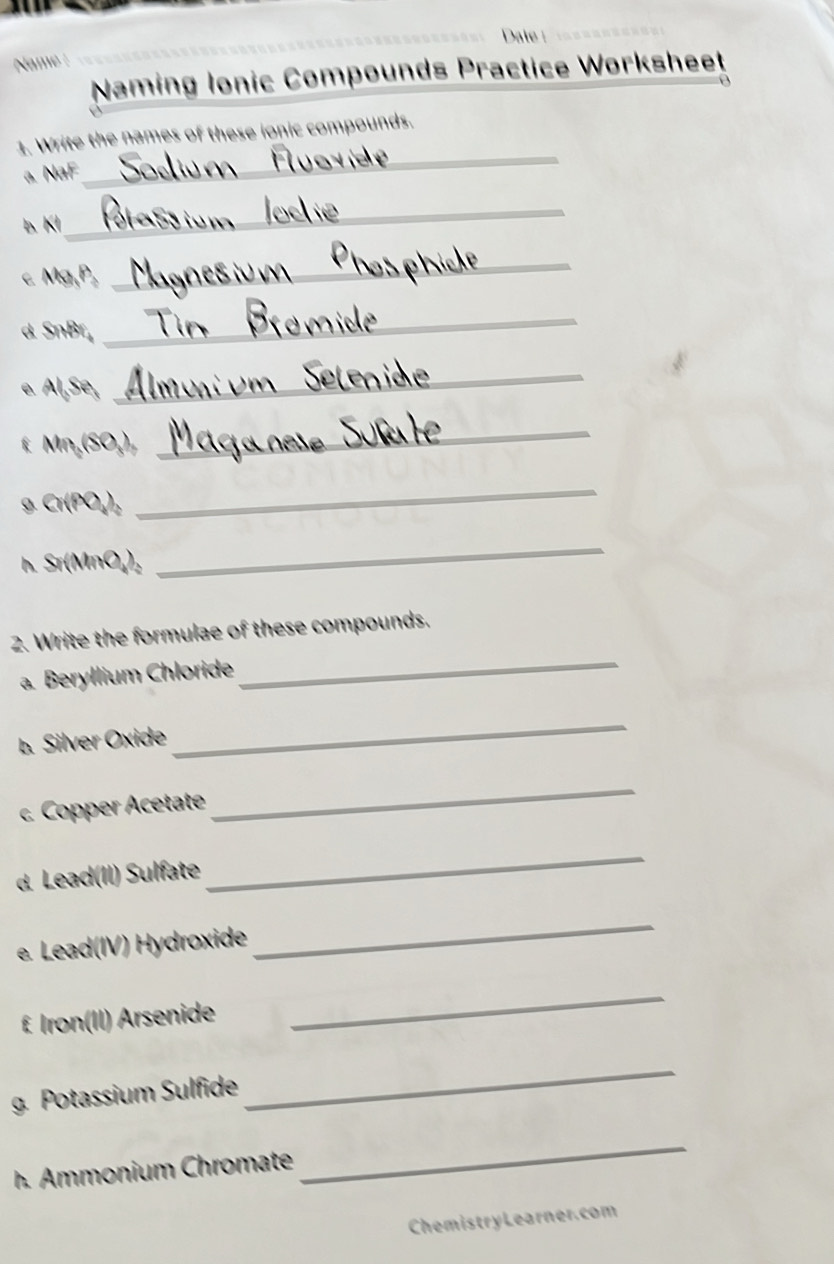 Name: Date:
Naming Ionic Compounds Practice Worksheet
1. Write the names of these ionic compounds.
a. NaF Sodium Fluoride
b. KI Potassium Iodie
c. Mg₃P₂ Magnesium Phosphide
d. SnBr₄ Tin Bromide
e. Al₂Se₃ Almunium Selenide
f. Mn₂(SO₄)₃ Maganese Sulfate
g. Cr(PO₄)₂
h. Sr(MnO₄)₂
2. Write the formulae of these compounds.
a. Beryllium Chloride
b. Silver Oxide
c. Copper Acetate
d. Lead(II) Sulfate
e. Lead(IV) Hydroxide
f. Iron(II) Arsenide
g. Potassium Sulfide
h. Ammonium Chromate
ChemistryLearner.com